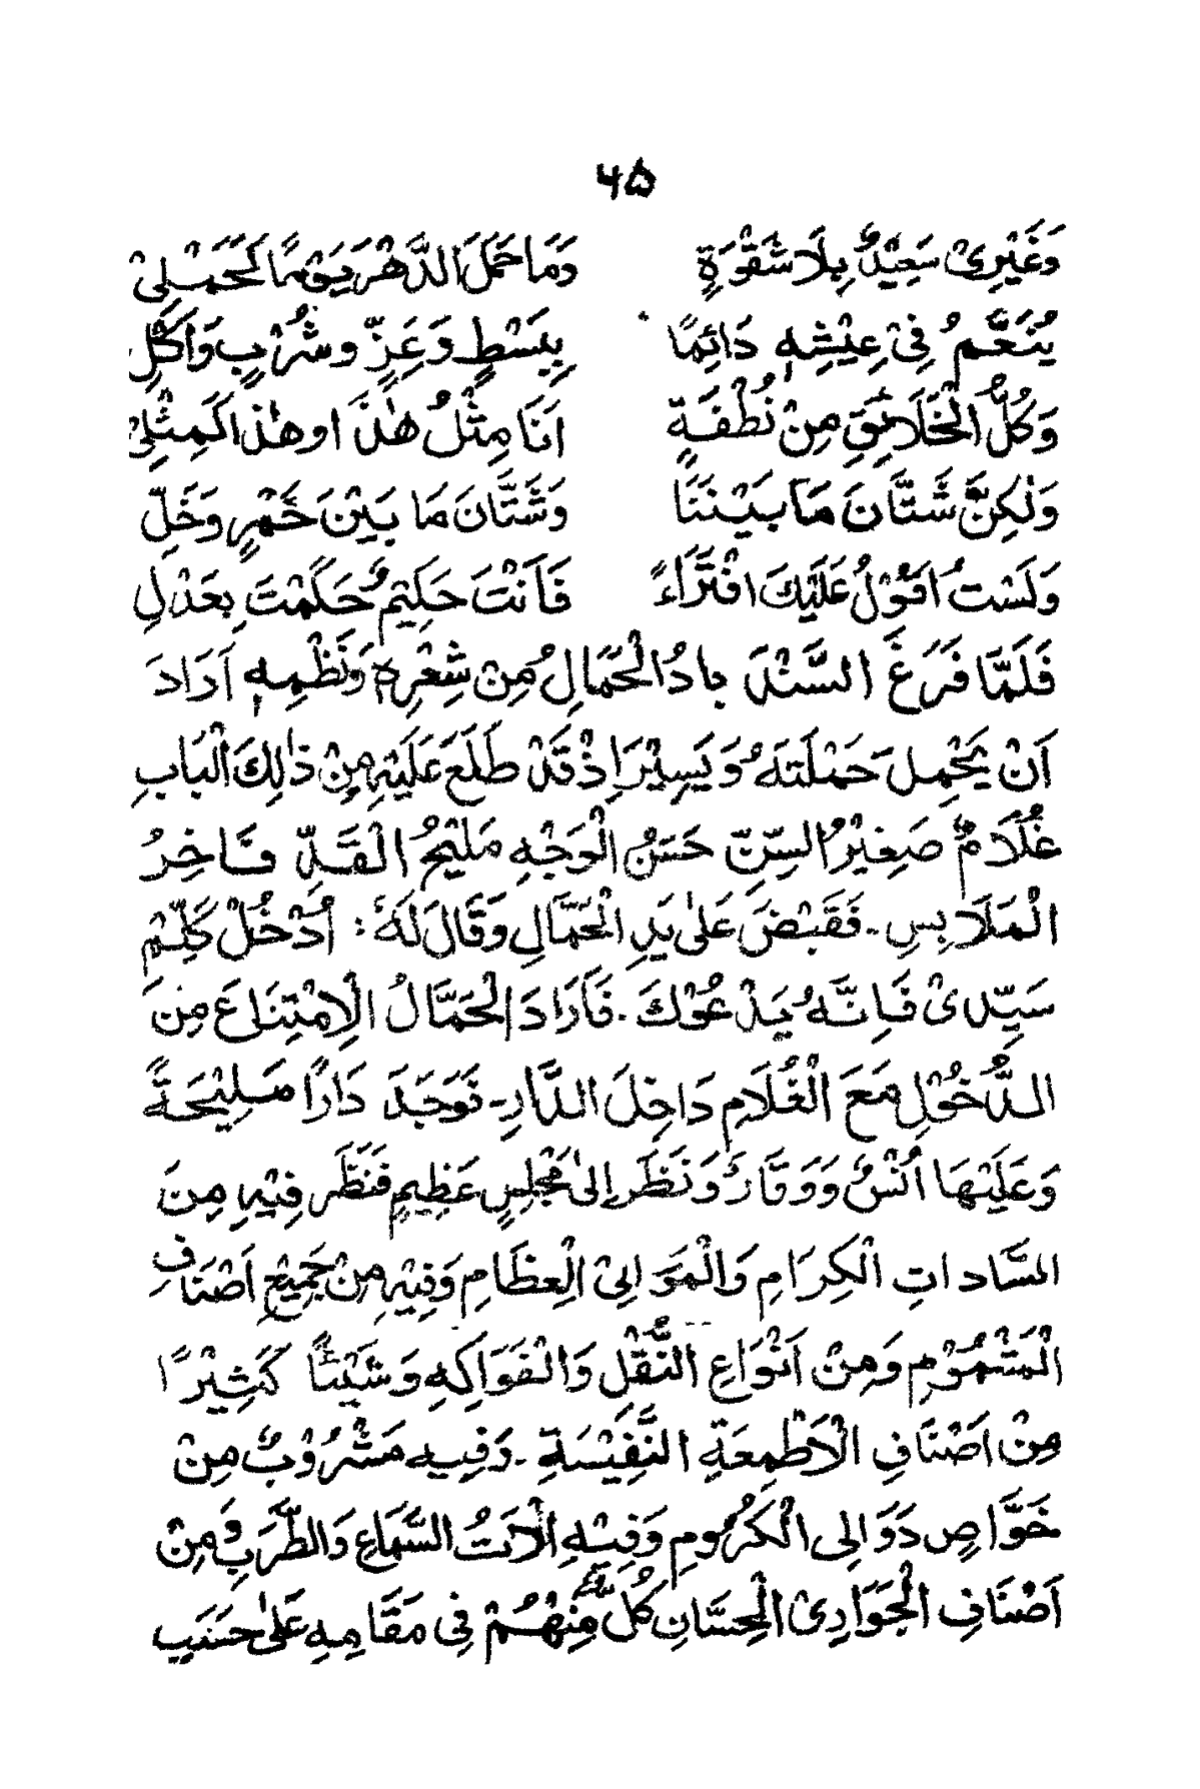 ۶۵
وَغَيْرِىْ سَعِيْدٌ بِلَا شَقْوَةٍ وَمَا حَمَلَ الدَّهْرُ يَوْمًا كَحَمْلِىْ
يُنَعَّمُ فِىْ عِيْشِهٖ دَائِمًا بِبَسْطٍ وَعَزٍّ وشُرْبٍ وَاَكْلٍ
وَكُلُّ الْخَلَائِقِ مِنْ نُطْفَةٍ اَنَا مِثْلُ هٰذَا وهٰذا كَمِثْلِىْ
وَلٰكِنَّ شَتَّانَ مَا بَيْنَنَا وَشَتَّانَ مَا بَيْنَ خَمْرٍ وَخَلٍّ
وَلَسْتُ اَقُوْلُ عَلَيْكَ افْتَرَاءً فَاَنْتَ حَكِيْمٌ حَكَمْتَ بِعَدْلِ
فَلَمَّا فَرَغَ السَّنْدَ بادُ الْحَمَّالِ مِنْ شِعْرِهٖ وَنَظْمِهٖ اَرَادَ
اَنْ يَحْمِلَ حَمْلَتَهٗ وَيَسِيْرَ اِذْ قَدْ طَلَعَ عَلَيْهِ مِنْ ذٰلِكَ الْبَابِ
غُلَامٌ صَغِيْرُ السِّنِّ حَسَنُ الْوَجْهِ مَلِيْحُ الْقَدِّ فَاخِرُ
الْمَلَابِسِ۔ فَقَبْضَ عَلىٰ يَدِ الْحَمَّالِ وَقَالَ لَهٗ : اُدْخُلْ كَلِّمْ
سَيِّدِىْ فَاِنَّهٗ يَدْعُوْكَ۔ فَاَرَادَ الْحَمَّالُ الْاِمْتِنَاعَ مِنَ
الدُّخُوْلِ مَعَ الْغُلَامِ دَاخِلَ الدَّارِ۔ فَوَجَدَ دَارًا مَلِيْحَةً
وَعَلَيْهَا اُنْسٌ وَوَقَارٌ وَنَظَرَ اِلىٰ مَجْلِسٍ عَظِيْمٍ فَنَظَرَ فِيْهِ مِنَ
السَّاداتِ الْكِرَامِ وَالْمَوَالِىْ الْعِظَامِ وَفِيْهِ مِنْ جَمِيْعِ اَصْنَافِ
الْمَشْمُوْمِ وَمِنْ اَنْوَاعِ النُّقْلِ وَالْفَوَاكِهِ وَشَيْئًا كَثِيْرًا
مِنْ اَصْنَافِ الْاَطْمِعَةِ النَّفِيْسَةِ۔ وَفِيهِ مَشْرُوْبٌ مِنْ
خَوَّاصِ دَوَالِى الْكَرُومِ وَفِيْهِ اٰلَاتُ السَّمَاعِ وَالطَّرَبِ وَمِنْ
اَصْنَافِ الْجَوَارِىْ الْحِسَّانِ كُلٌّ مِّنْهُمْ فِى مَقَامِهِ عَلىٰ حَسَبِ